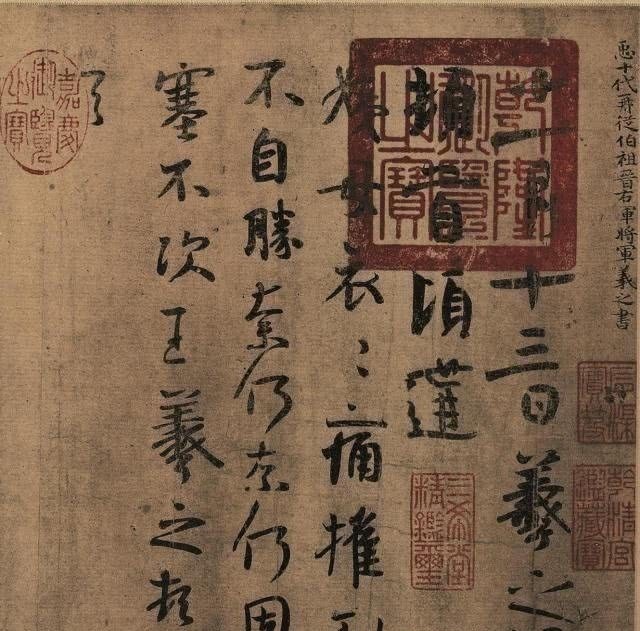 𢘑十代再從伯祖晉右軍將軍羲之書
十一月十三日羲之
頓首頃遘
姨母哀〻痛摧剝
不自勝奈何奈何因
塞不次王羲之頓
乾隆御覽之寶
石渠寶笈
乾清宮鑑藏寶
三希堂精鑑璽
嘉慶御覽之寶